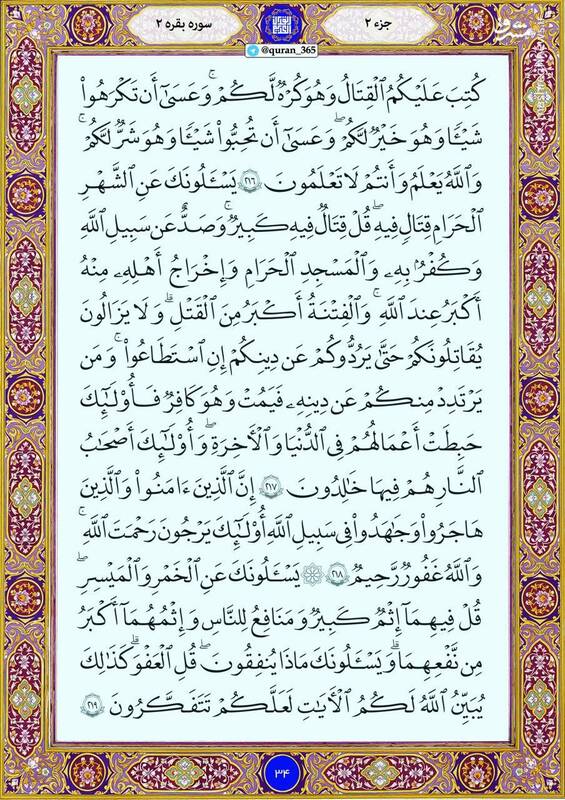 جزء ۲
سوره بقره ۲
@quran_365
كُتِبَ عَلَيْكُمُ ٱلْقِتَالُ وَهُوَ كُرْهٌ لَّكُمْ ۖ وَعَسَىٰٓ أَن تَكْرَهُوا۟
شَيْـًٔا وَهُوَ خَيْرٌ لَّكُمْ ۖ وَعَسَىٰٓ أَن تُحِبُّوا۟ شَيْـًٔا وَهُوَ شَرٌّ لَّكُمْ ۗ
وَٱللَّهُ يَعْلَمُ وَأَنتُمْ لَا تَعْلَمُونَ ٢١٦ يَسْـَٔلُونَكَ عَنِ ٱلشَّهْرِ
ٱلْحَرَامِ قِتَالٍ فِيهِ ۖ قُلْ قِتَالٌ فِيهِ كَبِيرٌ ۖ وَصَدٌّ عَن سَبِيلِ ٱللَّهِ
وَكُفْرٌۢ بِهِۦ وَٱلْمَسْجِدِ ٱلْحَرَامِ وَإِخْرَاجُ أَهْلِهِۦ مِنْهُ
أَكْبَرُ عِندَ ٱللَّهِ ۚ وَٱلْفِتْنَةُ أَكْبَرُ مِنَ ٱلْقَتْلِ ۗ وَلَا يَزَالُونَ
يُقَاتِلُونَكُمْ حَتَّىٰ يَرُدُّوكُمْ عَن دِينِكُمْ إِنِ ٱسْتَطَاعُوا۟ ۚ وَمَن
يَرْتَدِدْ مِنكُمْ عَن دِينِهِۦ فَيَمُتْ وَهُوَ كَافِرٌ فَأُو۟لَـٰٓئِكَ
حَبِطَتْ أَعْمَالُهُمْ فِى ٱلدُّنْيَا وَٱلْـَٔاخِرَةِ ۖ وَأُو۟لَـٰٓئِكَ أَصْحَابُ
ٱلنَّارِ هُمْ فِيهَا خَالِدُونَ ٢١٧ إِنَّ ٱلَّذِينَ ءَامَنُوا۟ وَٱلَّذِينَ
هَاجَرُوا۟ وَجَاهَدُوا۟ فِى سَبِيلِ ٱللَّهِ أُو۟لَـٰٓئِكَ يَرْجُونَ رَحْمَتَ ٱللَّهِ ۚ
وَٱللَّهُ غَفُورٌ رَّحِيمٌ ٢١٨ يَسْـَٔلُونَكَ عَنِ ٱلْخَمْرِ وَٱلْمَيْسِرِ ۖ
قُلْ فِيهِمَآ إِثْمٌ كَبِيرٌ وَمَنَافِعُ لِلنَّاسِ وَإِثْمُهُمَآ أَكْبَرُ
مِن نَّفْعِهِمَا ۗ وَيَسْـَٔلُونَكَ مَاذَا يُنفِقُونَ ۖ قُلِ ٱلْعَفْوَ ۗ كَذَٰلِكَ
يُبَيِّنُ ٱللَّهُ لَكُمُ ٱلْـَٔايَاتِ لَعَلَّكُمْ تَتَفَكَّرُونَ ٢١٩
۳۴